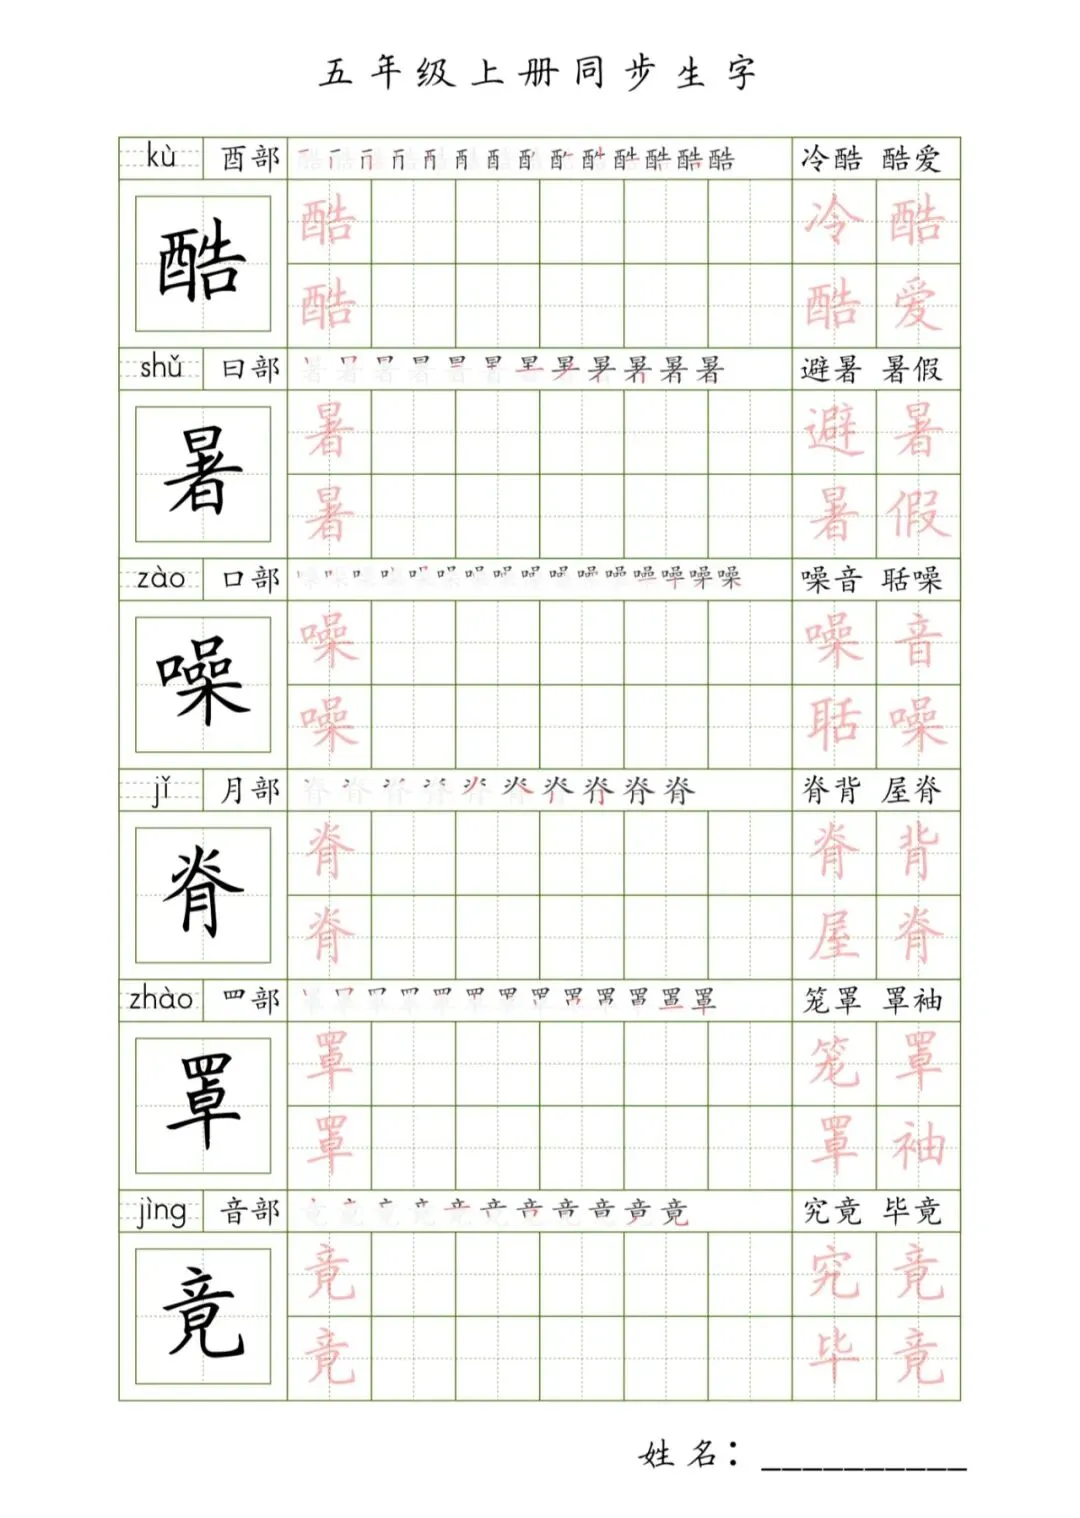 五年级上册同步生字
kù 酉部 酷 冷酷 酷爱
酷 酷 冷 酷
酷 酷 爱
shǔ 日部 暑 避暑 暑假
暑 暑 避 暑
暑 暑 假
zào 口部 噪 噪音 聒噪
噪 噪 噪 音
噪 聒 噪
jǐ 月部 脊 脊背 屋脊
脊 脊 脊 背
脊 屋 脊
zhào 罒部 罩 笼罩 罩袖
罩 罩 笼 罩
罩 罩 袖
jìng 音部 竟 究竟 毕竟
竟 竟 究 竟
竟 毕 竟
姓名：__________